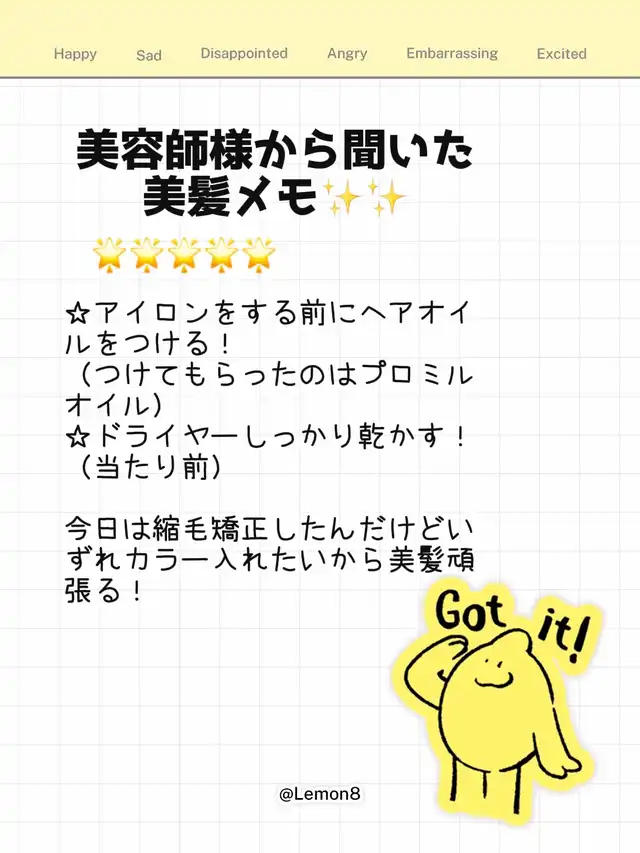 Happy Sad Disappointed Angry Embarrassing Excited
美容師様から聞いた
美髪メモ✨✨
🌟🌟🌟🌟🌟
☆アイロンをする前にヘアオイ
ルをつける！
（つけてもらったのはプロミル
オイル）
☆ドライヤーしっかり乾かす！
（当たり前）
今日は縮毛矯正したんだけどい
ずれカラー入れたいから美髪頑
張る！
Got it!
@Lemon8